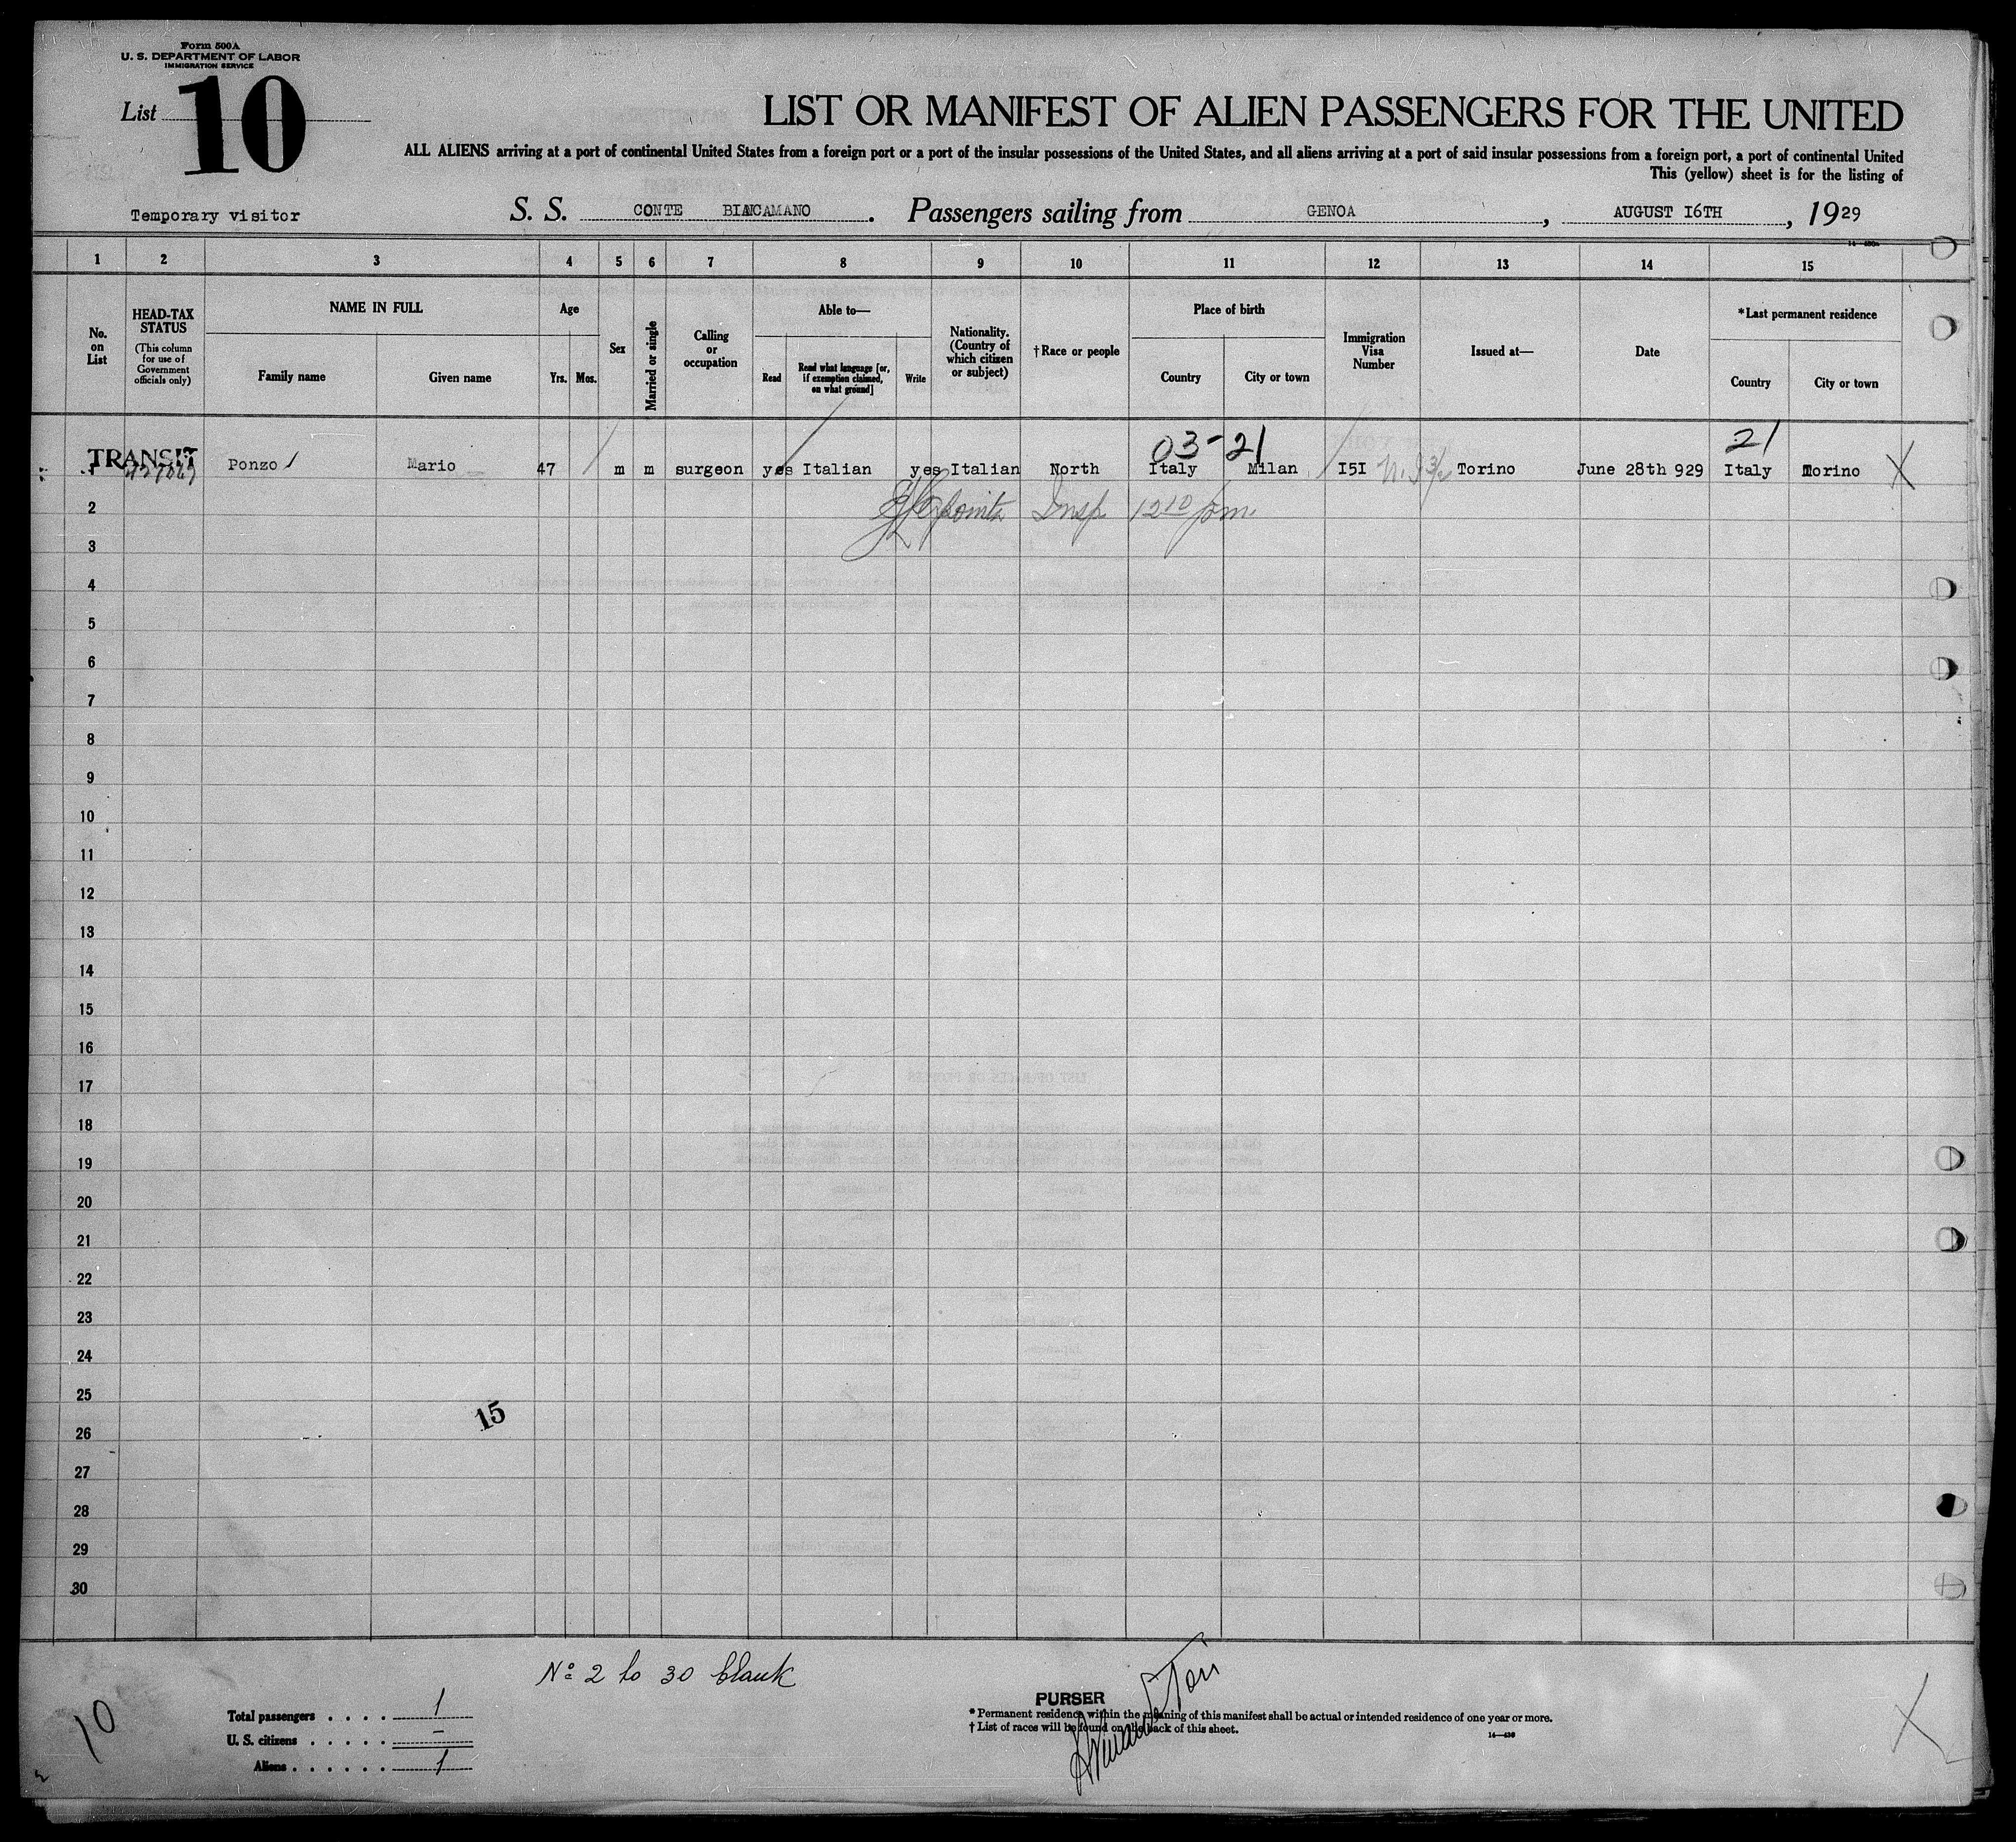 Form 500A
U. S. DEPARTMENT OF LABOR
IMMIGRATION SERVICE
List 10
LIST OR MANIFEST OF ALIEN PASSENGERS FOR THE UNITED
ALL ALIENS arriving at a port of continental United States from a foreign port or a port of the insular possessions of the United States, and all aliens arriving at a port of said insular possessions from a foreign port, a port of continental United
This (yellow) sheet is for the listing of
Temporary visitor
S. S. CONTE BIANCAMANO. Passengers sailing from GENOA, AUGUST I6TH, 1929
1 2 3 4 5 6 7 8 9 10 11 12 13 14 15
No. on List
HEAD-TAX STATUS
(This column for use of Government officials only)
NAME IN FULL
Family name
Given name
Age
Yrs. Mos.
Sex
Married or single
Calling or occupation
Able to—
Read
Read what language [or, if exemption claimed, on what ground]
Write
Nationality. (Country of which citizen or subject)
†Race or people
Place of birth
Country
City or town
Immigration Visa Number
Issued at—
Date
*Last permanent residence
Country
City or town
03-21
21
TRANSIT
1 Ponzo Mario 47 m m surgeon yes Italian yes Italian North Italy Milan I5I Torino June 28th 929 Italy Torino X
2 Insp 12 10 pm.
3
4
5
6
7
8
9
10
11
12
13
14
15
16
17
18
19
20
21
22
23
24
25
15
26
27
28
29
30
No 2 to 30 blank
10
Total passengers . . . . 1
U. S. citizens . . . . . –
Aliens . . . . . . 1
PURSER
* Permanent residence within the meaning of this manifest shall be actual or intended residence of one year or more.
† List of races will be found on the back of this sheet.
14—430
X